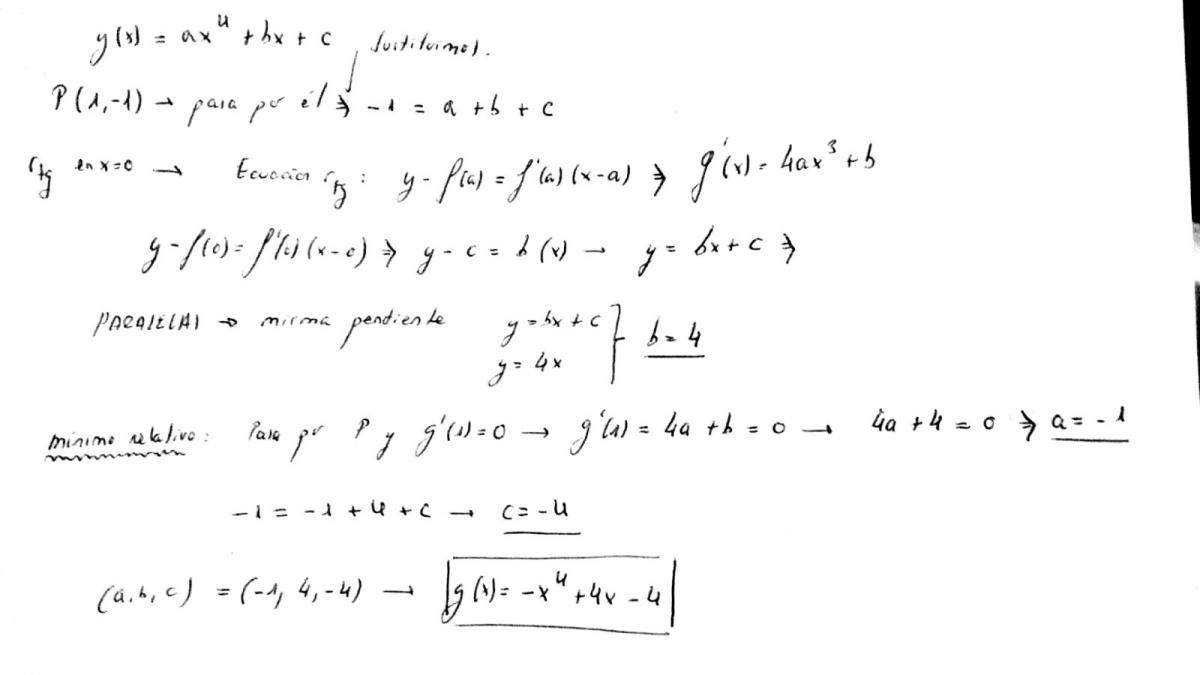 g(x) = ax⁴ + bx + c , Sustituimos.
P(1,-1) → pasa por él ⇒ -1 = a + b + c
rtg en x=0 → Ecuación rtg : y - f(a) = f'(a) (x-a) ⇒ g'(x) = 4ax³ + b
y - f(0) = f'(0) (x-0) ⇒ y - c = b (x) → y = bx + c ⇒
PARALELAS → misma pendiente y = bx + c } b = 4
y = 4x
mínimo relativo : Pasa por P y g'(1) = 0 → g'(1) = 4a + b = 0 → 4a + 4 = 0 ⇒ a = -1
-1 = -1 + 4 + c → c = -4
(a, b, c) = (-1, 4, -4) → g(x) = -x⁴ + 4x - 4